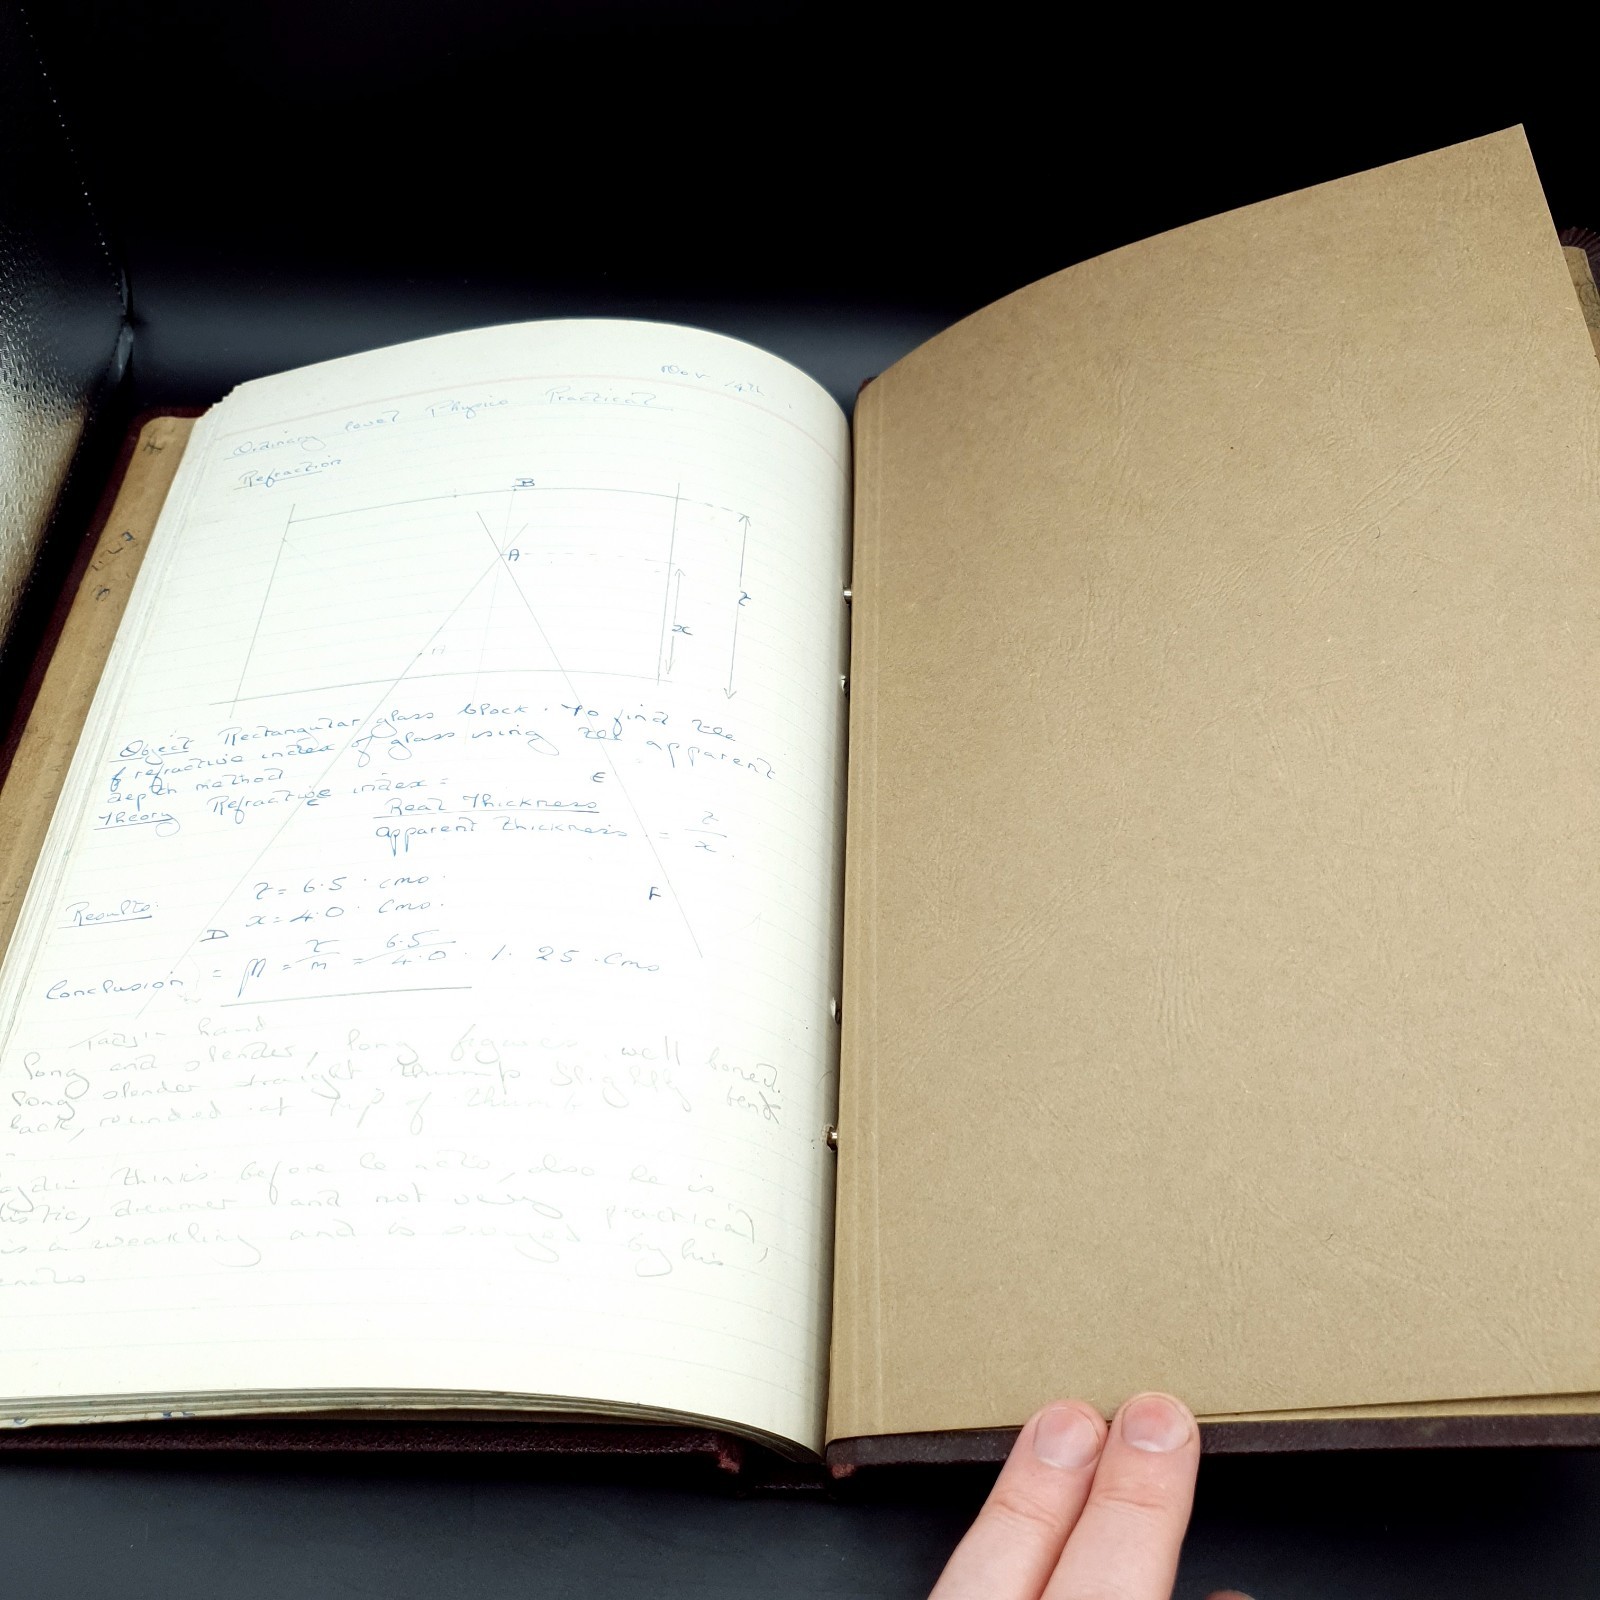 Nov 14th
Ordinary level Physics Practical
Refraction
B
A
H
z
x
Object Rectangular glass block. To find the
refractive index of glass using the apparent
depth method
E
Theory Refractive index =
C
Real Thickness
apparent thickness = z
x
z = 6.5 cms.
Results. x = 4.0 cms.
F
D
Conclusion = M = z/m = 6.5/4.0 1.25 cms
hand
long and slender, long fingers well boned.
long slender straight thump slightly bent
back, rounded at tip of thumb
thinks before he acts, also he is
dreamer and not very practical,
is a weakling and is swayed by his